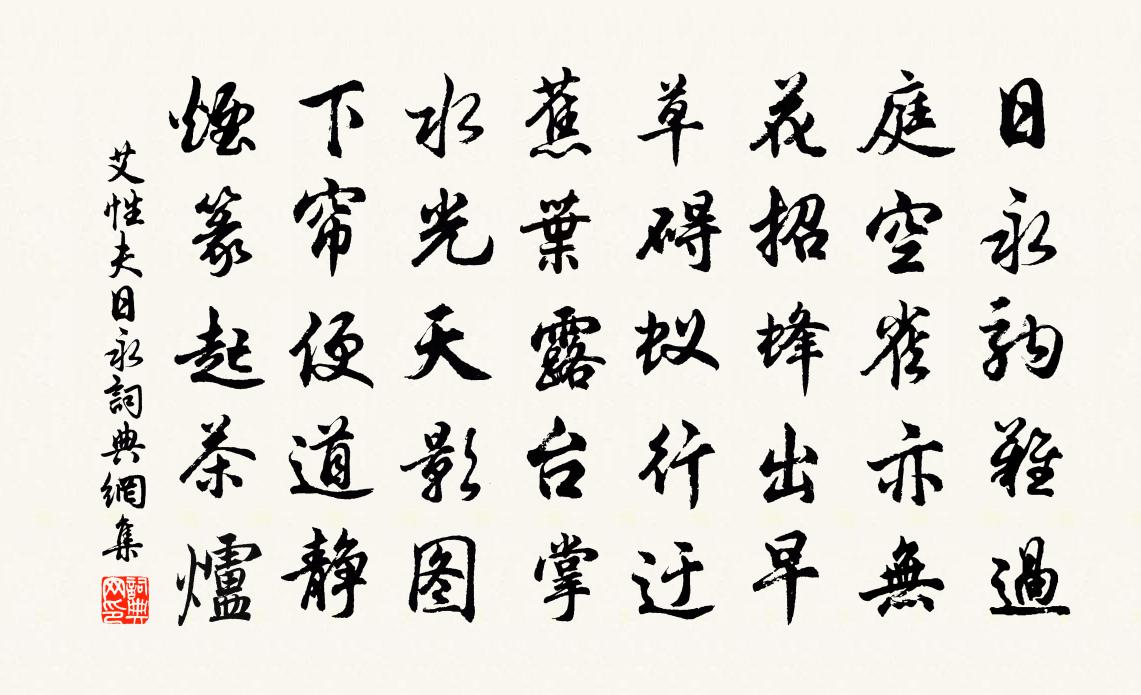 日永韵難過
庭空雀亦無
花招蜂出早
草碍蚁行迂
蕉葉露台掌
水光天影图
下帘便道静
煙篆起茶爐
艾性夫日永詞典網集
詞典网印